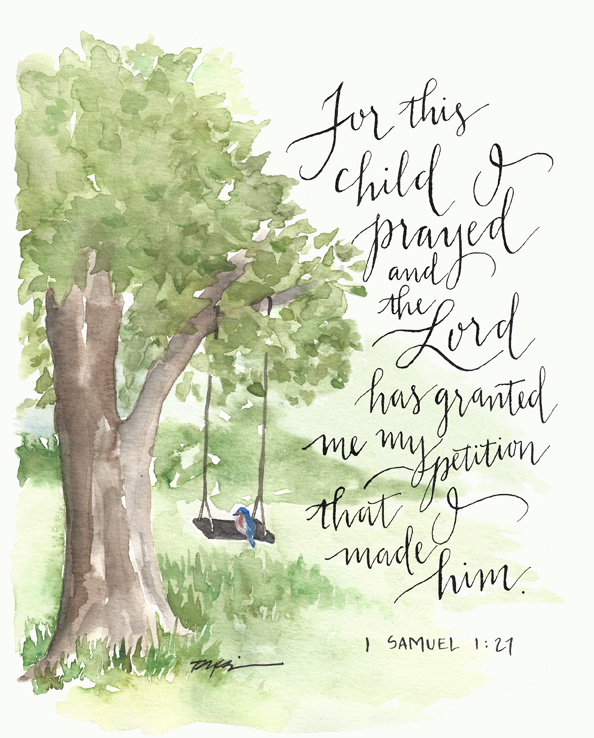 For this
child I
prayed
and
the
Lord
has granted
me my
petition
that I
made
him.
1 SAMUEL 1:27